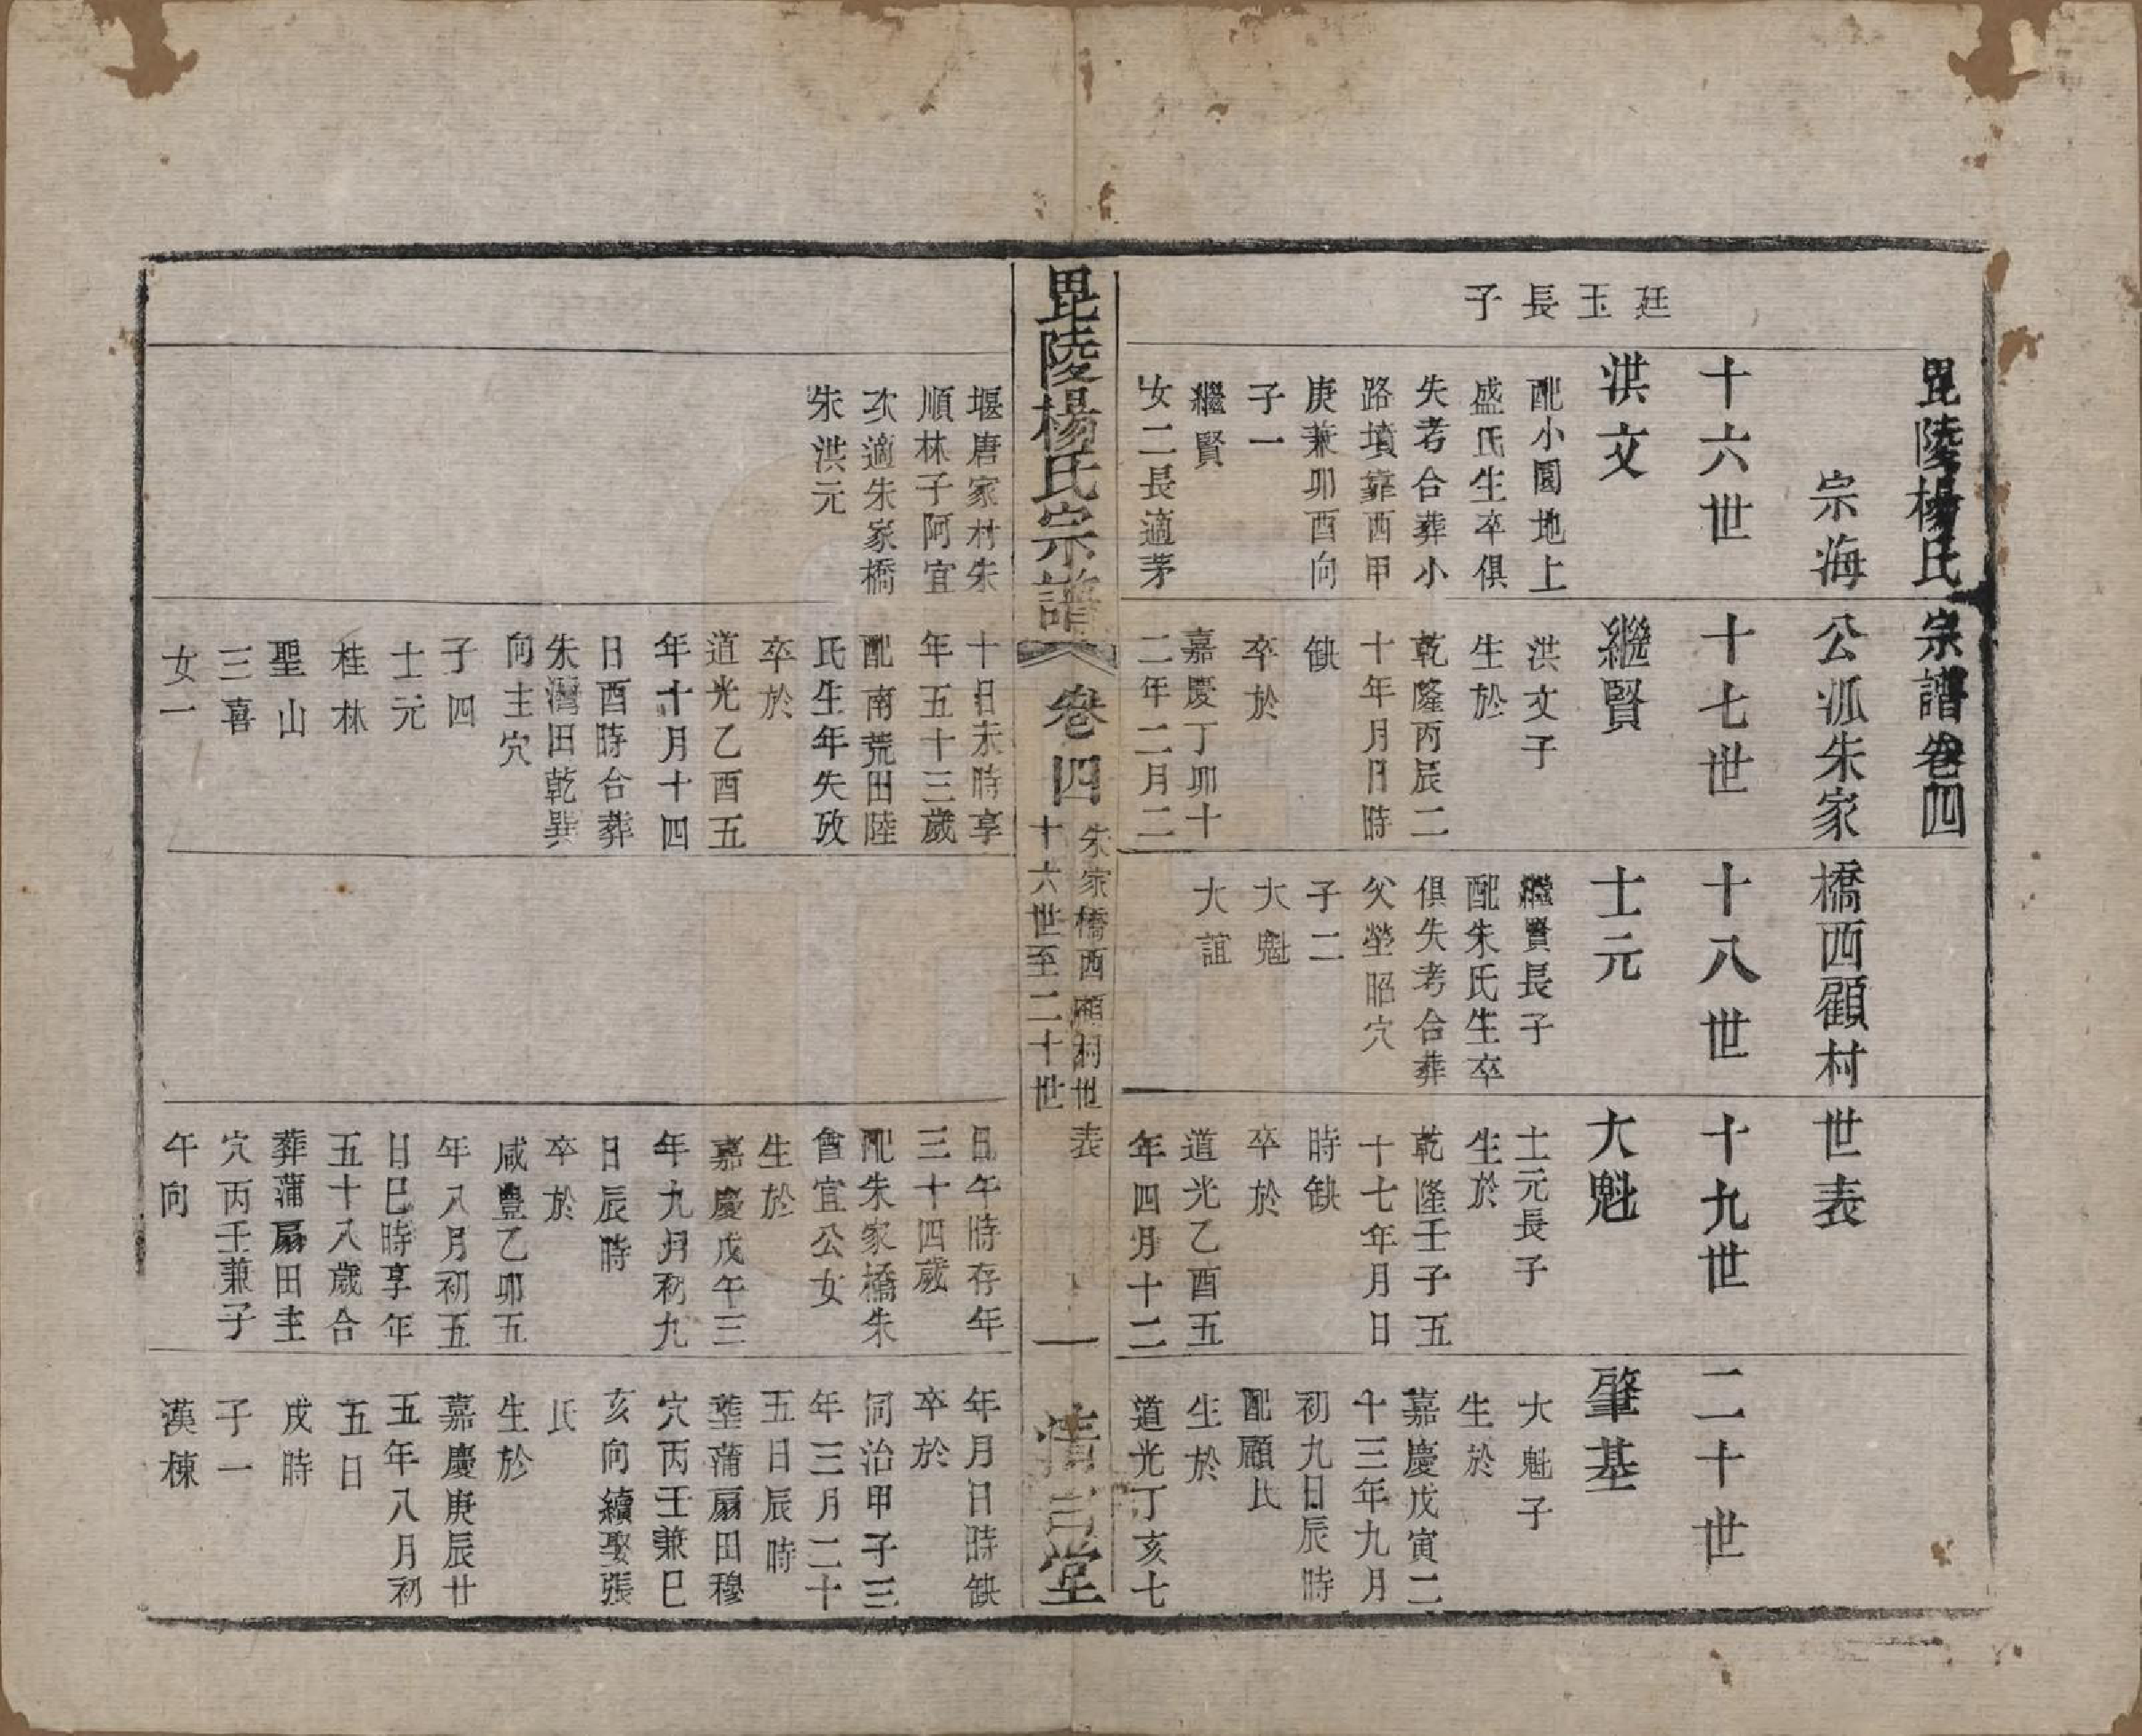 毘陵楊氏宗譜卷四
宗海公派朱家橋西顧村世表
十六世
十七世
十八世
十九世
二十世
廷玉長子
洪文
配小園地上
盛氏生卒俱
失考合葬小
路墳靠西甲
庚兼卯酉向
子一
繼賢
女二長適茅
堰唐家村朱
順林子阿宜
次適朱家橋
朱洪元
繼賢
洪文子
生於
乾隆丙辰二
十年月日時
缺
卒於
嘉慶丁卯十
二年二月二
十日未時享
年五十三歲
配南荒田陸
氏生年失攷
卒於
道光乙酉五
年十月十四
日酉時合葬
朱灣田乾巽
向主穴
子四
士元
桂林
聖山
三喜
女一
士元
繼賢長子
配朱氏生卒
俱失考合葬
父塋昭穴
子二
大魁
大誼
大魁
士元長子
生於
乾隆壬子五
十七年月日
時缺
卒於
道光乙酉五
年四月十二
日午時存年
三十四歲
配朱家橋朱
會宜公女
生於
嘉慶戊午三
年九月初九
日辰時
卒於
咸豐乙卯五
年八月初五
日巳時享年
五十八歲合
葬蒲扇田主
穴丙壬兼子
午向
肇基
大魁子
生於
嘉慶戊寅二
十三年九月
初九日辰時
配顧氏
生於
道光丁亥七
年月日時缺
卒於
同治甲子三
年三月二十
五日辰時
塟蒲扇田穆
穴丙壬兼巳
亥向續娶張
氏
生於
嘉慶庚辰廿
五年八月初
五日
戌時
子一
漢棟
毘陵楊氏宗譜
卷四
朱家橋西顧村世表
十六世至二十世
一
清白堂